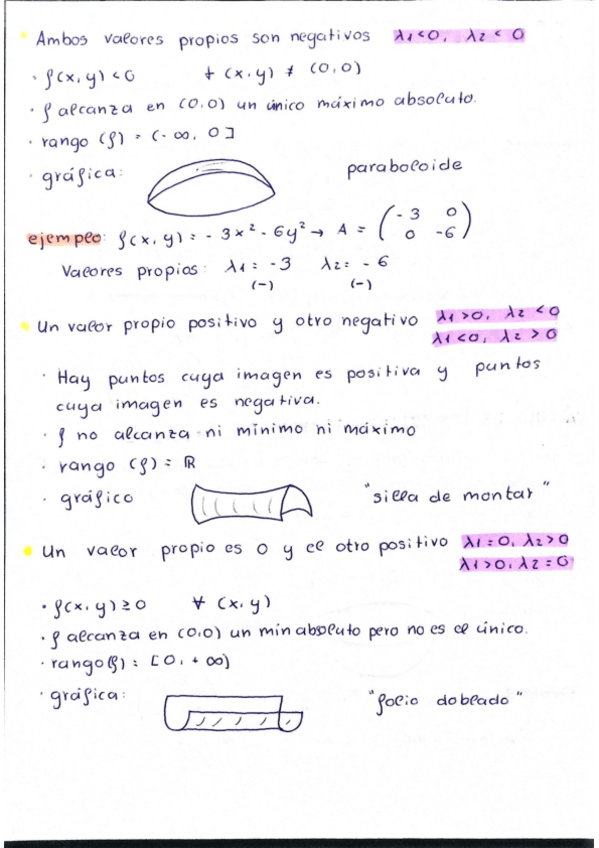 Ambos valores propios son negativos λ1<0, λ2 < 0
· f(x,y) < 0 ∀ (x,y) ≠ (0,0)
· f alcanza en (0,0) un único máximo absoluto.
· rango (f) = (-∞, 0]
· gráfica: paraboloide
ejemplo: f(x,y) = -3x² - 6y² → A = (-3 0
0 -6)
Valores propios: λ1 = -3 λ2 = -6
(-) (-)
Un valor propio positivo y otro negativo λ1>0, λ2 <0
λ1<0, λ2 >0
· Hay puntos cuya imagen es positiva y puntos
cuya imagen es negativa.
· f no alcanza ni mínimo ni máximo
· rango (f) = ℝ
· gráfico "silla de montar"
Un valor propio es 0 y el otro positivo λ1=0, λ2>0
λ1>0, λ2=0
· f(x,y) ≥ 0 ∀ (x,y)
· f alcanza en (0,0) un min absoluto pero no es el único.
· rango(f) = [0, +∞)
· gráfica: "folio doblado"